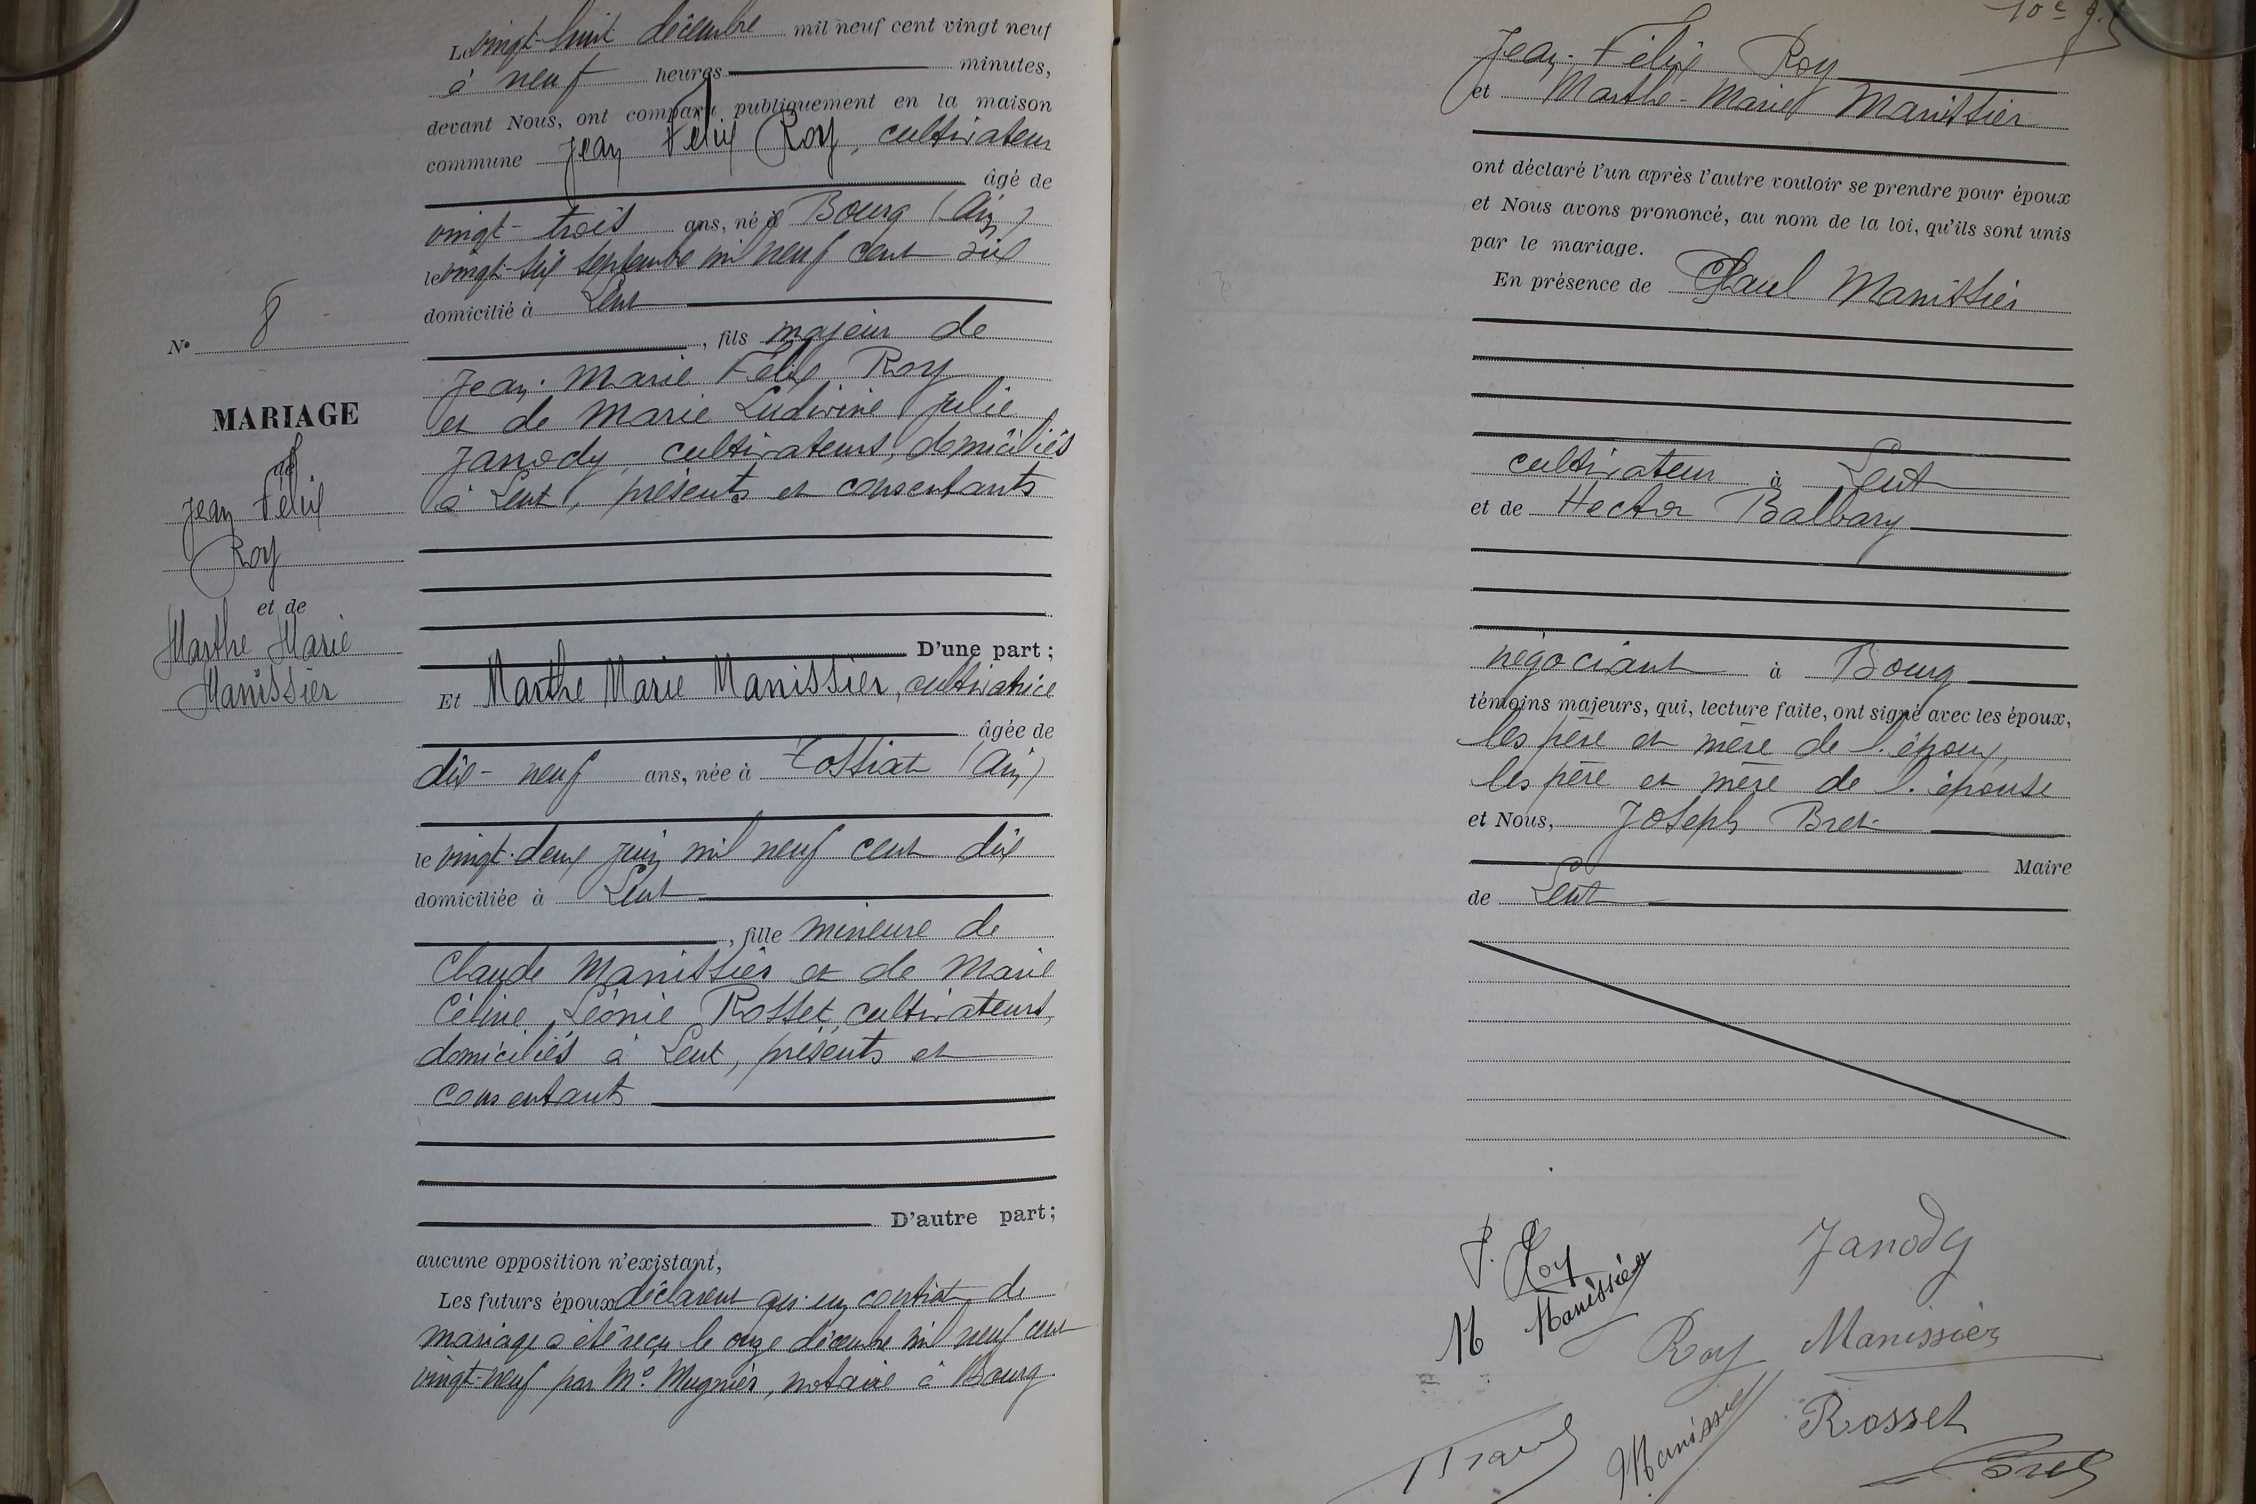 Le vingt-huit décembre mil neuf cent vingt neuf
à neuf heures minutes,
devant Nous, ont comparu publiquement en la maison
commune Jean Félix Roy, cultivateur
âgé de
vingt-trois ans, né à Bourg (Ain)
le vingt-six septembre mil neuf cent six
domicilié à Lent
, fils majeur de
Jean-Marie Félix Roy
et de Marie Ludivine Julie
Janody, cultivateurs, domiciliés
à Lent, présents et consentants
D'une part ;
Et Marthe Marie Manissier, cultivatrice
âgée de
dix-neuf ans, née à Tossiat (Ain)
le vingt-deux juin mil neuf cent dix
domiciliée à Lent
, fille mineure de
Claude Manissier et de Marie
Céline Léonie Rosset, cultivateurs,
domiciliés à Lent, présents et
consentants
D'autre part ;
aucune opposition n'existant,
Les futurs époux déclarent qu'un contrat de
mariage a été reçu le onze décembre mil neuf cent
vingt-neuf par Me Mugnier, notaire à Bourg
N° 8
MARIAGE
de
Jean Félix
Roy
et de
Marthe Marie
Manissier
10e
Jean-Félix Roy
et Marthe-Marie Manissier
ont déclaré l'un après l'autre vouloir se prendre pour époux
et Nous avons prononcé, au nom de la loi, qu'ils sont unis
par le mariage.
En présence de Paul Manissier
cultivateur à Lent
et de Hector Balvay
négociant à Bourg
témoins majeurs, qui, lecture faite, ont signé avec les époux,
les père et mère de l'époux,
les père et mère de l'épouse
et Nous, Joseph Bret
Maire
de Lent
F. Roy
Janody
M Manissier
Roy Manissier
Manissier
Rosset
Bret